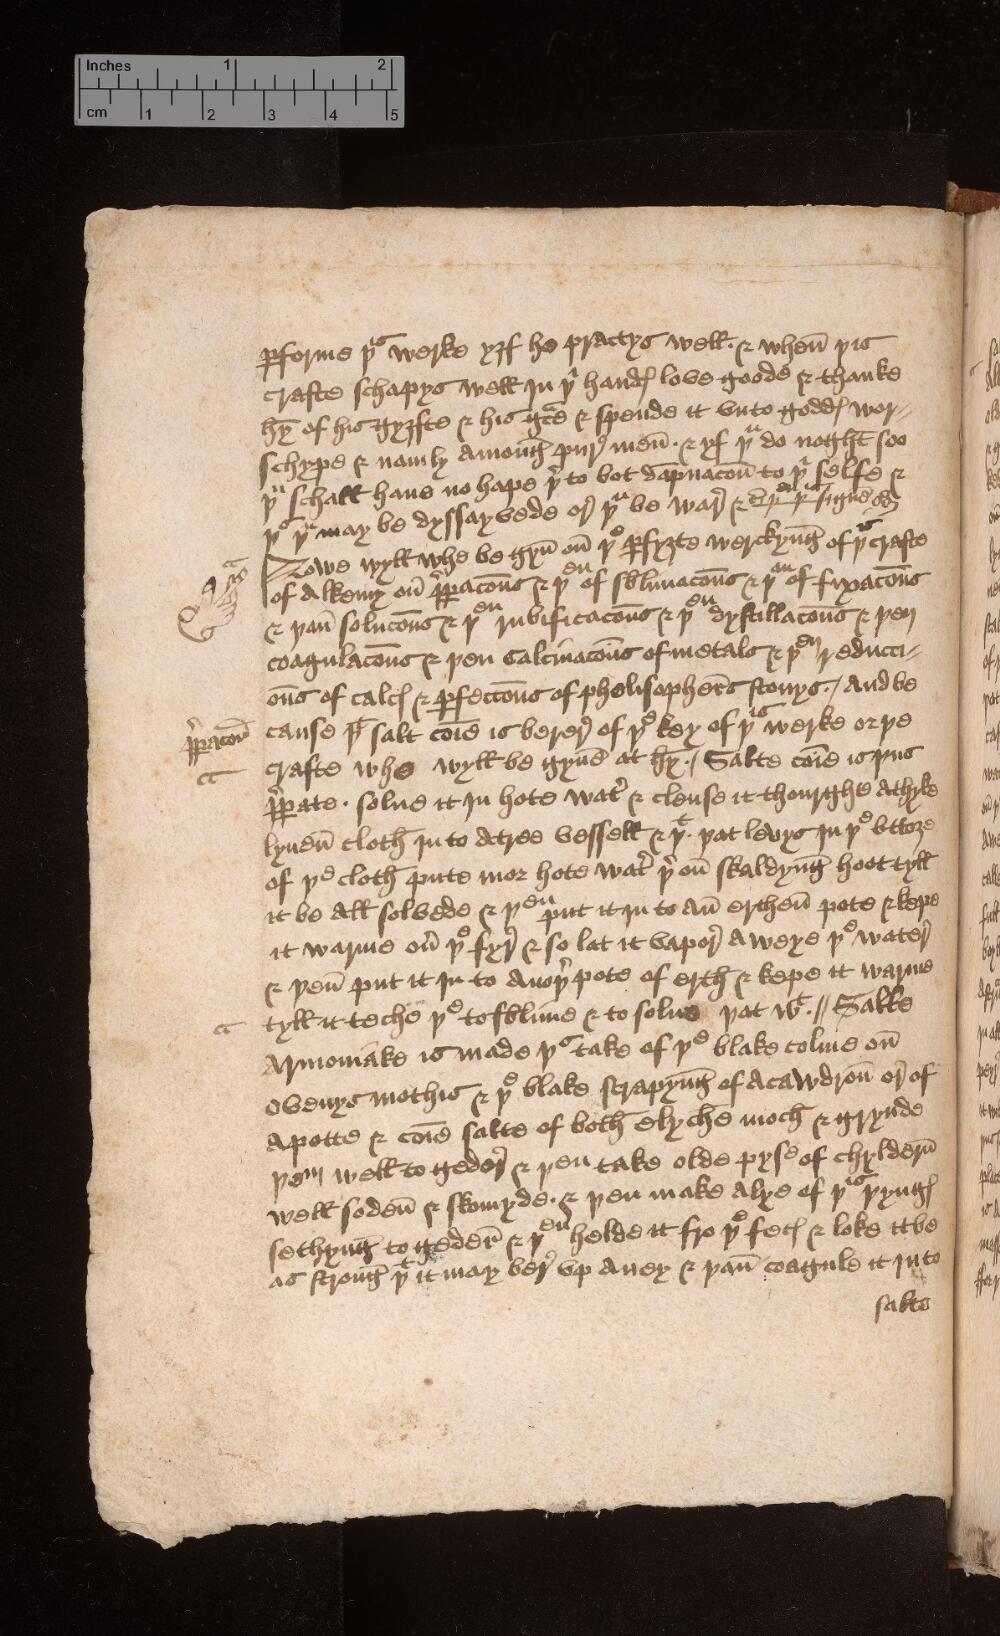 Inches 1 2
cm 1 2 3 4 5
ꝑforme þis werke yȝf he practys well · & when̄ þis
crafte schapys well in þi handꝭ love goode & thanke
hȳ of his gyȝfte & his gͣce & spende it vnto goddꝭ wor-
schype & namly amonḡ pur̛ men̄ · & yf þu do noght soo
þu schall haue no hape þ̛to bot dāpnacōn to þi selfe &
þus þu may be dyssayvede or̛ þu be war̛ &
Nowe wyll whe be gyn̄ on̄ þe ꝑfyȝte werckynḡ of þis crafte
of Alkemy on̄ p̛ꝑacōns & þen of sblimacōns & þan of fixacōns
& þan̄ solucōns & þen rubificacōns & þen dystillacōns & þen
coagulacōns & þen calcinacōns of metals & þen reducci-
ons of calcꝭ & ꝑfeccōns of phelisophers stonys · / And be
p̛ꝑacōn
cause þt salt cōıe is berer̛ of þe key of þis werke or þe
crafte whe wyll be gyn̄e at hȳ · / Salte cōıe is þus
p̛ꝑate · solue it in hote wat̛ & clense it thourghe A thyke
lynen̄ cloth in to A tree vessell & þt · þat levys in þe bttoze
of þe cloth pute mor hote wat̛ þ̛ on̄ skaldynḡ hoot tyll
it be All solvede & þen put it in to An̄ erthen̄ pote & kepe
it warme on̄ þe fyr̛ & so lat it vapor̛ A weye þe water̛
& þen̄ put it in to Anoþ̛ pote of erth & kepe it warme
tyll it teche þe to sblime & to solue þat wt · // Salle
Armoniake is made þus take of þe blake colme on̄
ovenys mothis & þe blake scrapynḡ of A cawdron̄ or̛ of
A potte & cōıe salte of both elyche moch & grynde
þem well to geder̛ & þen take olde pyse of chyldern̄
well soden̄ & skomyde · & þen make A lye of þis þyngꝭ
sethynḡ to geder̄ & þen helde it fro þe fecꝭ & loke it be
as stronḡ þt it may ber̛ vp A ney & þan̄ coagule it in to
salte